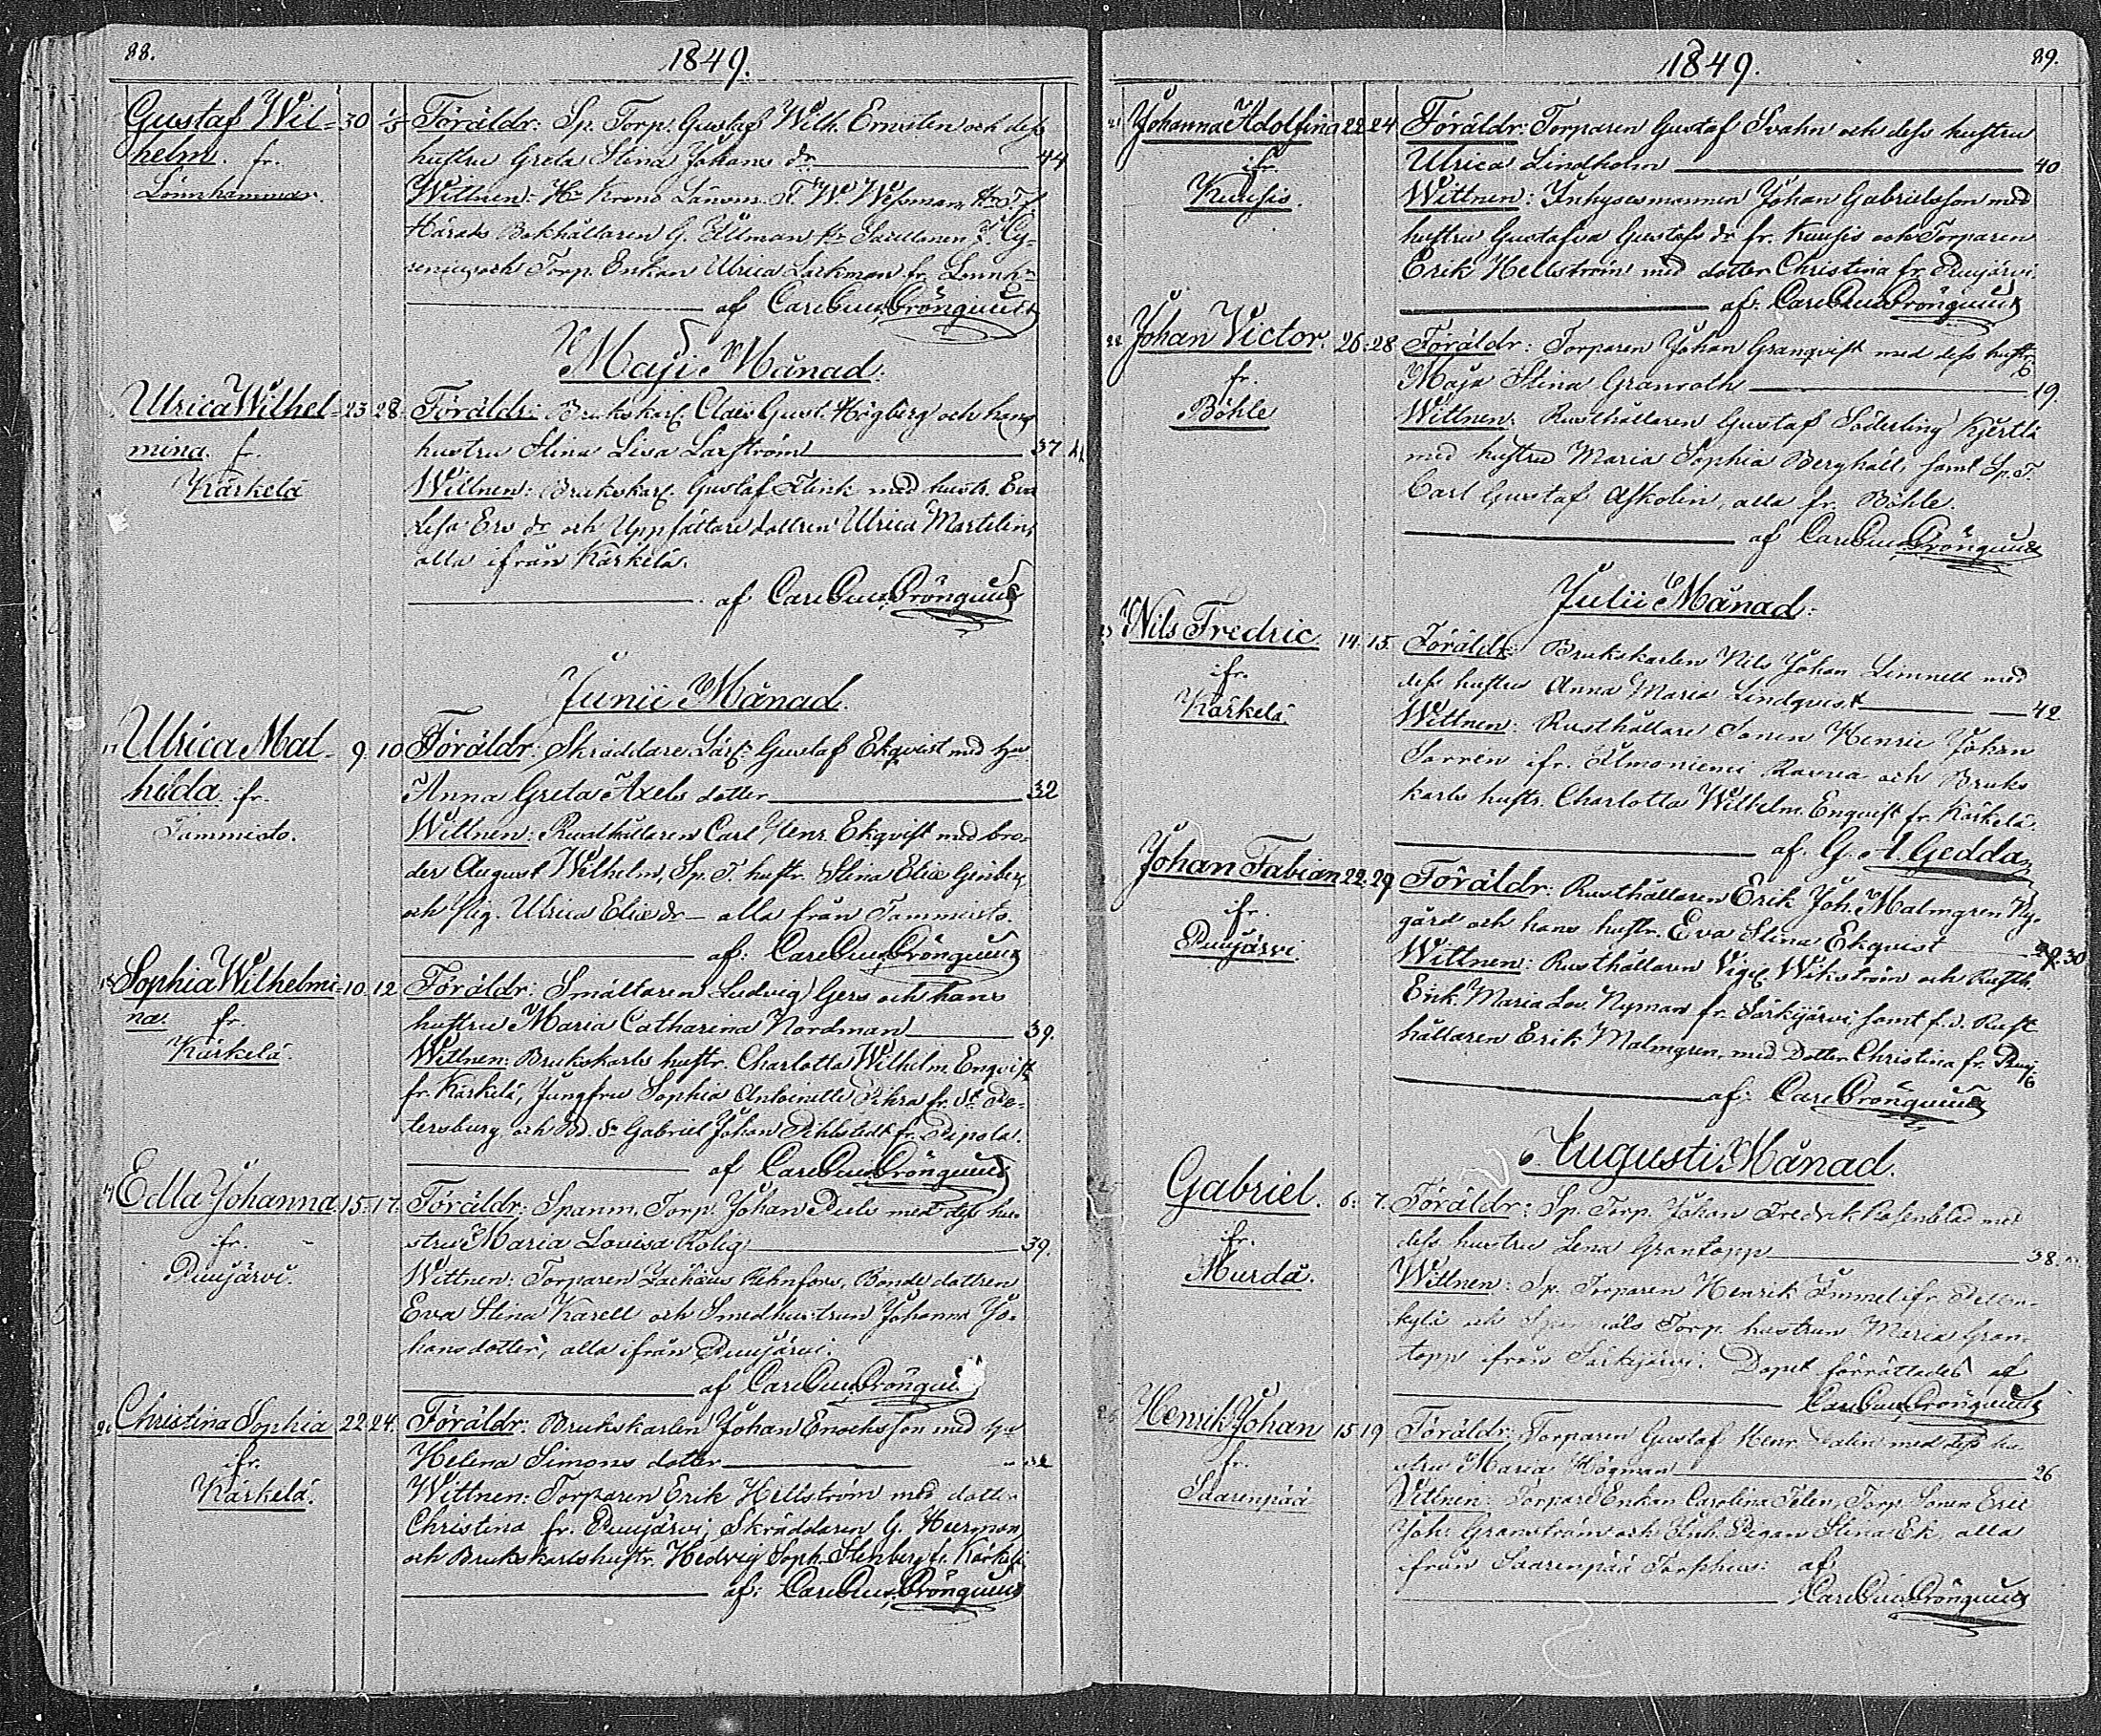 88.
1849.
Gustaf Wil- 30 1/5 Föräldr: Sp. Torp. Gustaf Wilh. Ernsten och dess
helm. fr. hustru Greta Stina Johans dr 44
Lönnhammar. Wittnen: Hr Krono Länsm. F. W. Wessman, Hr T. f.
Härads Bokhållaren G. Tillman, Hr
och Torp. Enkan Ulrica Lackman fr. Lönnhr
af Carl Gust. Crönquist
Maji Månad.
Ulrica Wilhel- 23 28. Föräldr: Brukskarl. Claës Gust. Högberg och hans
mina. fr. hustru Stina Lisa Laxström 37
Kärkelä Wittnen: Brukskarl. Gustaf Flink med hustr. Eva
Lisa Ers dr och Uppsättare dottren Ulrica Martelin,
alla ifrån Kärkelä.
af Carl Gust. Crönquist
Junii Månad.
17 Ulrica Mat- 9. 10 Föräldr: Skräddare Lärl: Gustaf Ekqvist med hu
hilda. fr. Anna Greta Axels dotter 32
Tammisto. Wittnen: Rusthållaren Carl Henr. Ekqvist med bro-
der August Wilhelm, Sp. T. hustr. Stina Eliæ Grönberg
och Pig. Ulrica Eliædr alla från Tammisto.
af: Carl Gust. Crönquist
18 Sophia Wilhelmi- 10. 12 Föräldr: Smältaren Ludvig Gers och hans
na. fr. hustru Maria Catharina Nordman 39.
Kärkelä. Wittnen: Brukskarls hustr. Charlotta Wilhelm. Enqvist
fr. Kärkelä, Jungfru Sophia Antoinette Pihra fr. St. Pe-
tersburg och Bd. Sn Gabriel Johan Pihlstedt fr. Pipola.
af Carl Gust. Crönquist
19 Edla Johanna 15. 17. Föräldr: Spanm. Torp. Johan Piels med dess hu-
ifr. stru Maria Lovisa Rölig 39.
Puujärvi. Wittnen: Torparen Zachæus Rehnfors, Bonde dottren
Eva Stina Karell och Smedhustrun Johanna Jo-
hansdotter, alla ifrån Puujärvi.
af Carl Gust. Crönquist
20 Christina Sophia 22 24. Föräldr: Brukskarlen Johan Enochsson med hu
ifr. Helena Simons dotter 32
Kärkelä. Wittnen: Torparen Erik Hellström med dotter
Christina fr. Puujärvi, Skräddaren G. Heerman
och Brukskarlshustr. Hedvig Soph. Stenberg fr. Kärkelä
af: Carl Gust. Crönquist
1849.
89.
21 Johanna Adolfina 22 24 Föräldr: Torparen Gustaf Svahn och dess hustru
ifr. Ulrica Lindholm 40
Kuusis. Wittnen: Inhysesmannen Johan Gabrielsson med
hustru Gustafva Gustafs dr fr. Kuusis och Torparen
Erik Hellström med dotter Christina fr. Puujärvi.
af: Carl Gust. Crönquist
22 Johan Victor. 26. 28. Föräldr: Torparen Johan Granqvist med dess hustr.
fr. Maja Stina Granroth 19
Böhle Wittnen: Rusthållaren Gustaf Söderling Kjertlä
med hustru Maria Sophia Berghäll, samt Sp. T.
Carl Gustaf Askolin, alla fr. Böhle.
af Carl Gust. Crönquist
Julii Månad.
23 Nils Fredric 14. 15. Föräldr: Brukskarlen Nils Johan Limnell med
ifr. dess hustru Anna Maria Lindqvist 42
Kärkelä. Wittnen: Rusthållare Sonen Henric Johan
Sorrén ifr. Ilmoniemi Ravua och Bruks
karls hustr. Charlotta Wilhelm. Enqvist fr. Kärkelä.
af. G. A. Gedda
Johan Fabian 22. 29 Föräldr: Rusthållaren Erik Joh. Malmgren Ny-
ifr. gård och hans hustr. Eva Stina Ekqvist 30
Puujärvi. Wittnen: Rusthållaren Vigel. Wikström och Rusth.
Enk. Maria Lov. Nyman fr. Särkijärvi samt f. d. Rust-
hållaren Erik Malmgren, med Dotter Christina fr. Puuj.
af: Carl Crönquist
Augusti Månad.
25 Gabriel. 6. 7. Föräldr: Sp. Torp. Johan Fredrik Rosenblad med
ifr. dess hustru Lena Grantopp 38.
Murdä. Wittnen: Sp. Torparen Henrik Immel ifr.
kylä och Spanmåls Torp. hustrun Maria Gran-
topp ifrån Särkijärvi. Dopet förrättades af
Carl Gust. Crönquist
26 Henrik Johan 15 19 Föräldr: Torparen Gustaf Henr. Dalin med dess hu-
fr. stru Maria Högman 26
Saarenpää Wittnen: Torpare Enkan Carolina Telen, Torp. Sonen Eric
Joh. Granström och Inh. Pigan Stina Ek, alla
ifrån Saarenpää Torphus: af
Carl Gust. Crönquist